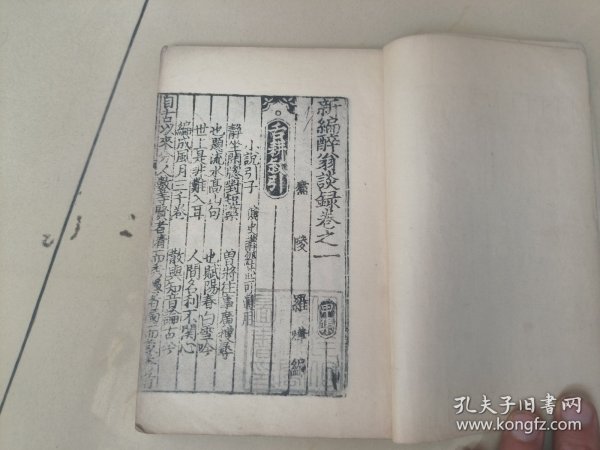 新編醉翁談録卷之一
廬陵 羅燁編
舌耕叙引
小說引子 演史講經並可通用
靜坐閑窓對短檠 曽將往事廣搜尋
也題流水高山句 也賦陽春白雪吟
世上是非難入耳 人間名利不関心
編成風月三千卷 散與知音論古今
自古以來分人數等賢者
孔夫子旧书网
www.kongfz.com